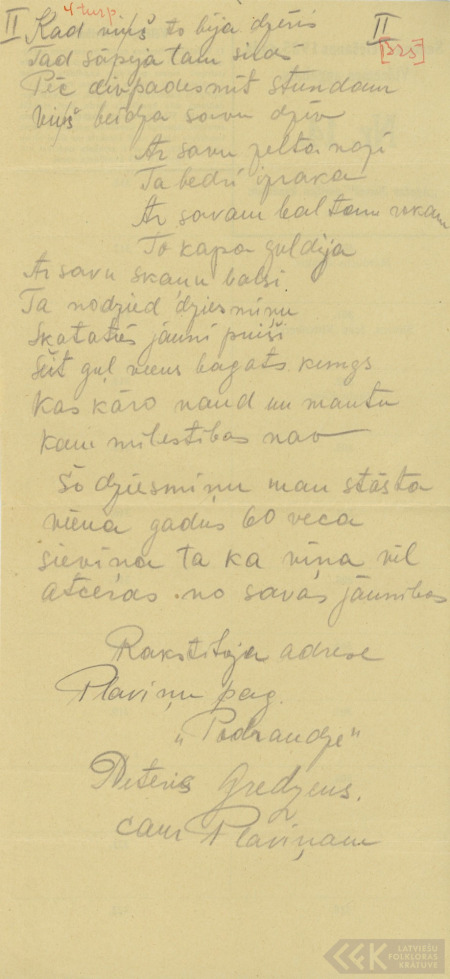 4 turp.
II Kad viņš to bija dzēris II
[325]
Tad sāpēja tam sirds
Pēc divpadesmit stundam
Viņš beidza savu dzīv
Ar savu zelta nazi
Ta bedri izraka
Ar savam baltam rokam
To kapa guldija
Ar savu skanu balsi
Ta nodzied dziesmiņu
Skataties jauni puiši
Šit guļ viens bagats kungs
Kas kāro naud un mantu
kam milestibas nav
Šo dziesmiņu man stāsta
viena gadus 60 veca
sieviņa ta ka viņa vēl
atceras no savas jaunibas
Rakstitāja adrese
Plaviņu pag.
Peteris Gredzens.
caur Plaviņam
LATVIEŠU
FOLKLORAS
KRĀTUVE